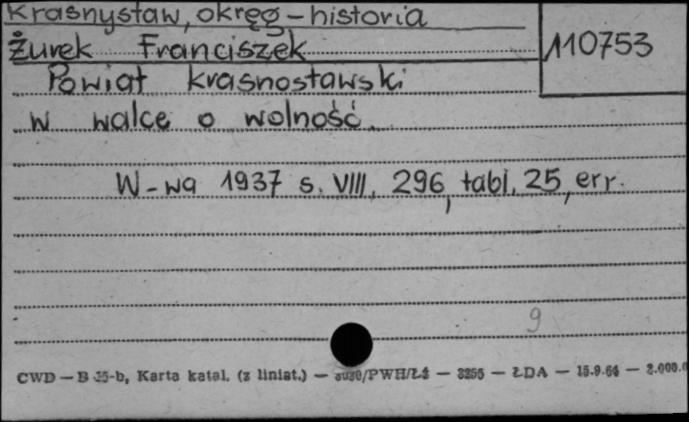 Krasnystaw, okręg – historia
Żurek Franciszek
110753
Powiat krasnostawski
w walce o wolność.
W-wa 1937 s. VIII, 296, tabl. 25, err.
9
CWD — B 35-b, Karta katal. (z liniat.) — /PWH/Łż — 3256 — ŁDA — 15.9.64 — 2.000.0